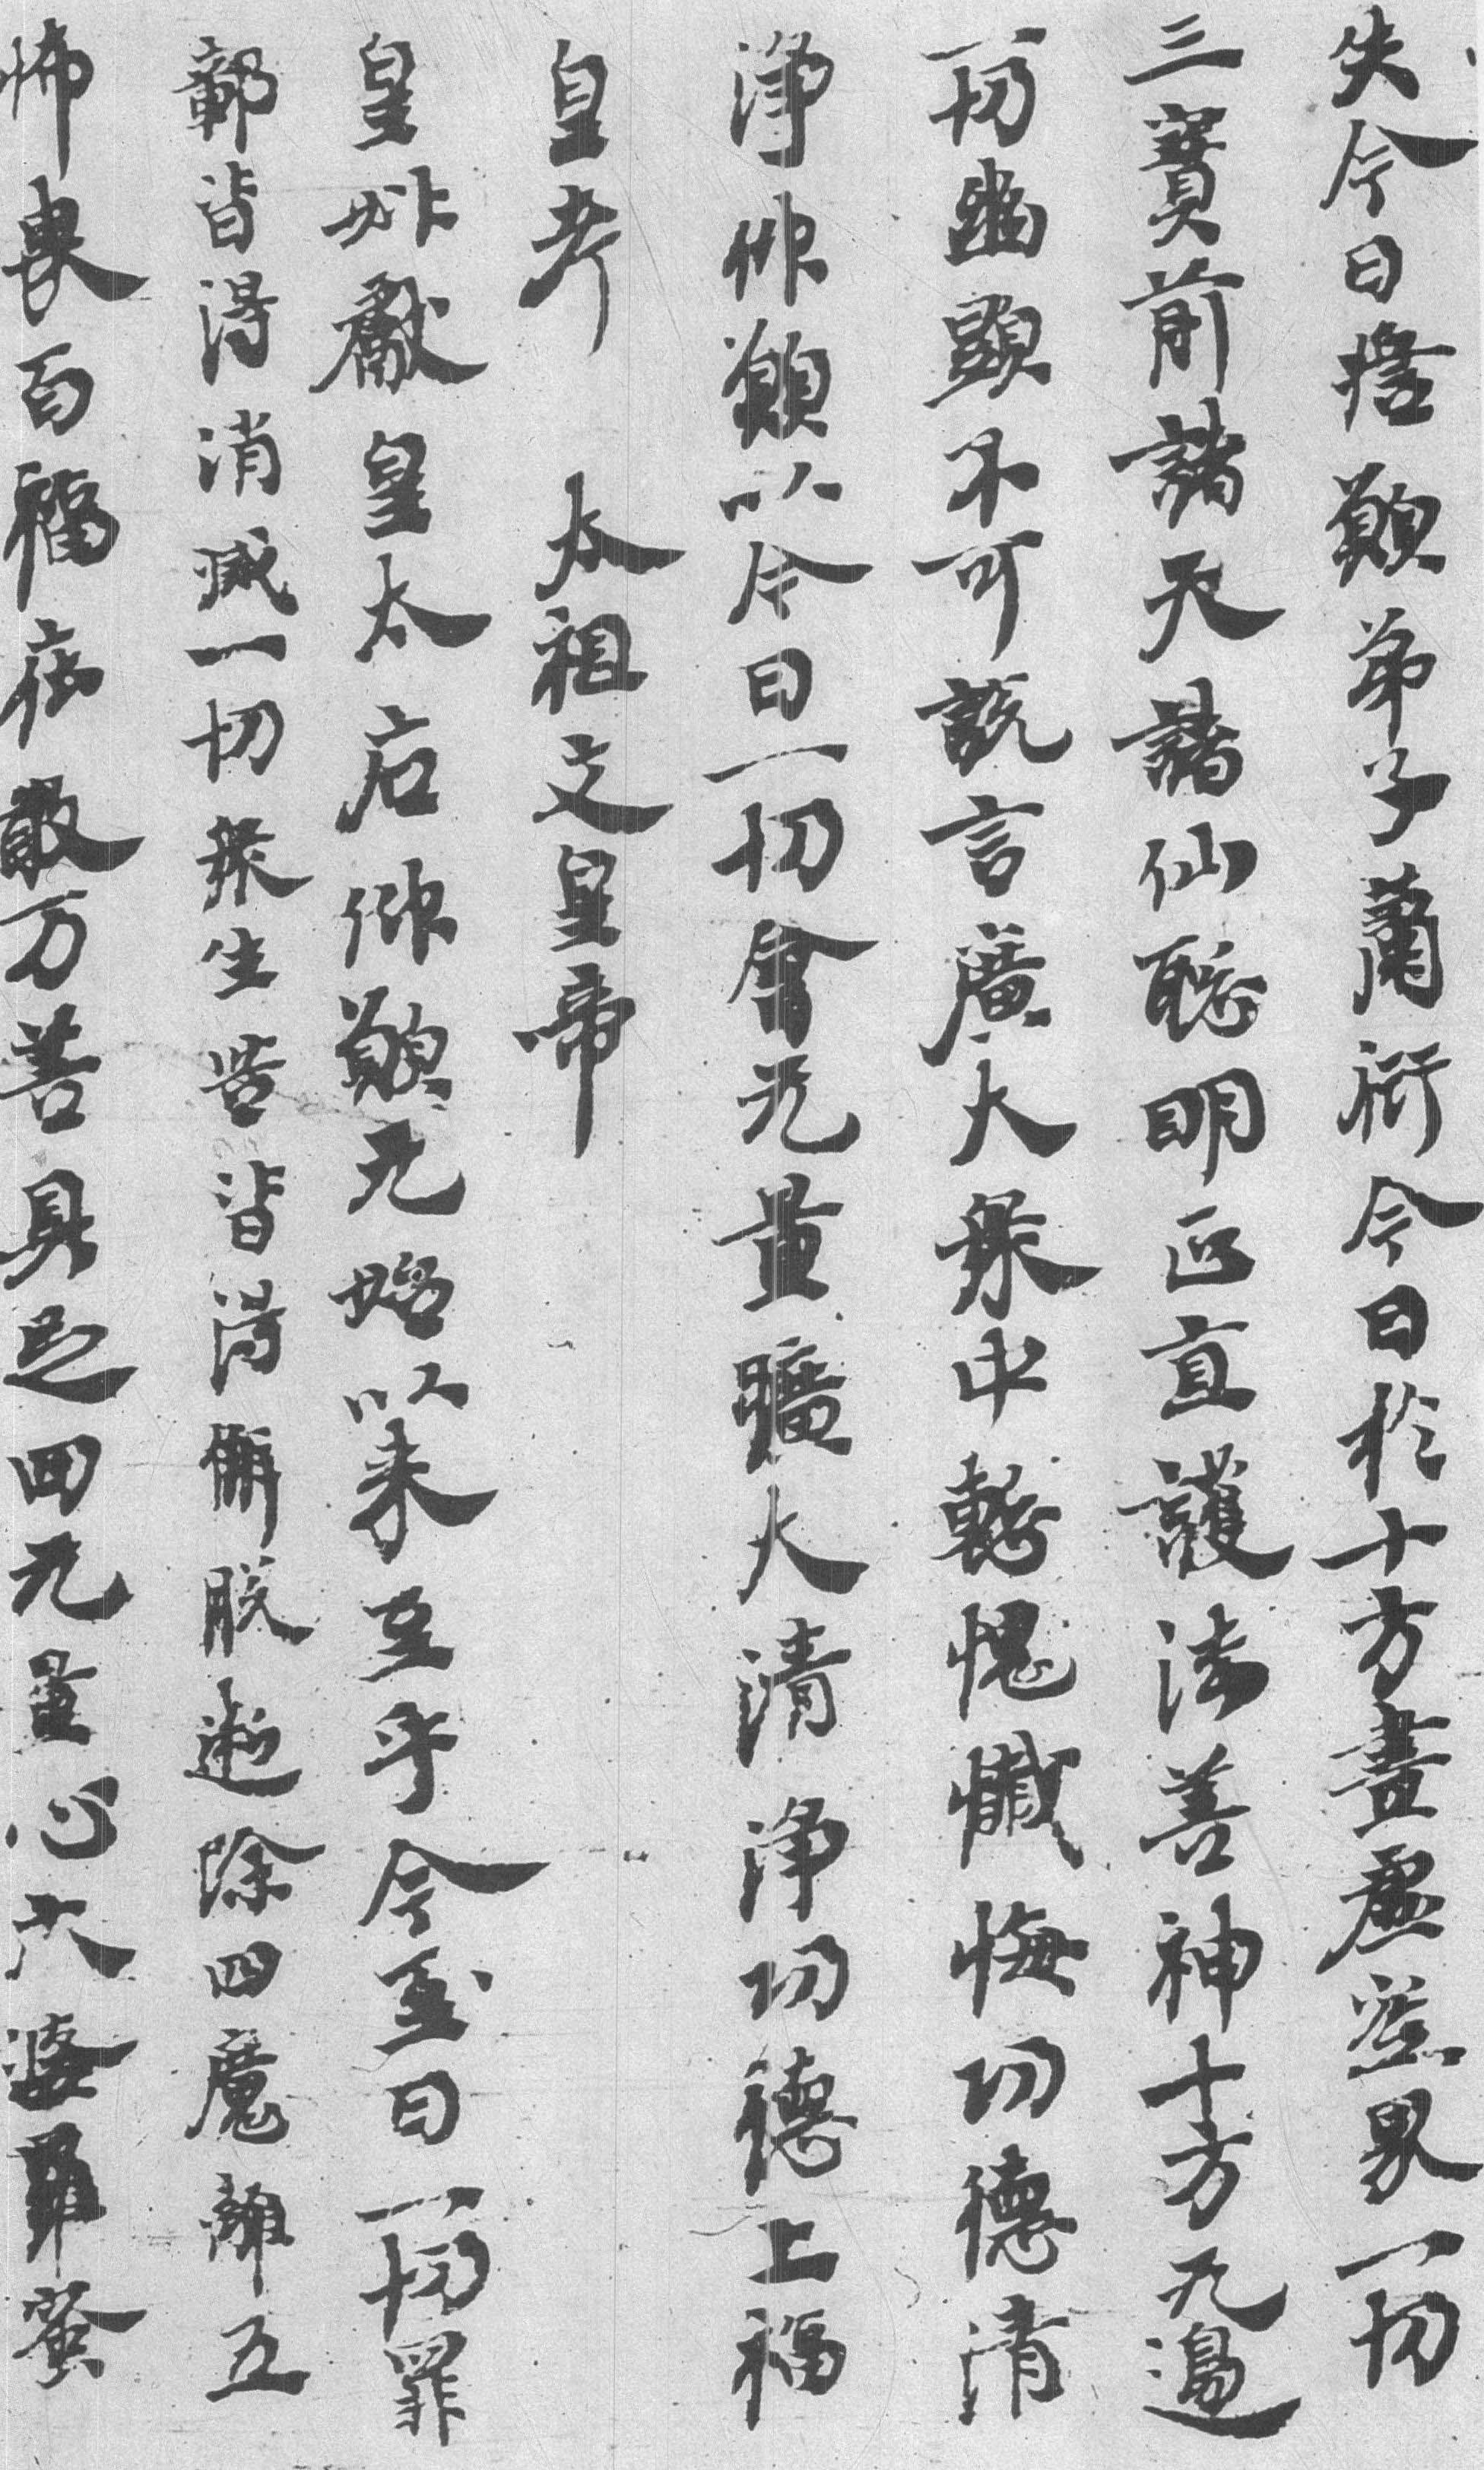 失今日擔願弟子蕭衍今日於十方盡虛空界一切
三寶前諸天諸仙聡明正直護法善神十方无邊
一切幽顯不可說言廣大衆中慙愧懺悔功德清
淨仰願以今日一切會无量曠大清淨功德上福
皇考 太祖文皇帝
皇妣獻皇太后仰願无始以来至乎今至日一切罪
鄣皆得消滅一切衆生苦皆得解脱逝除四魔離五
怖畏百福庄嚴万善具足四无量心六婆羅蜜